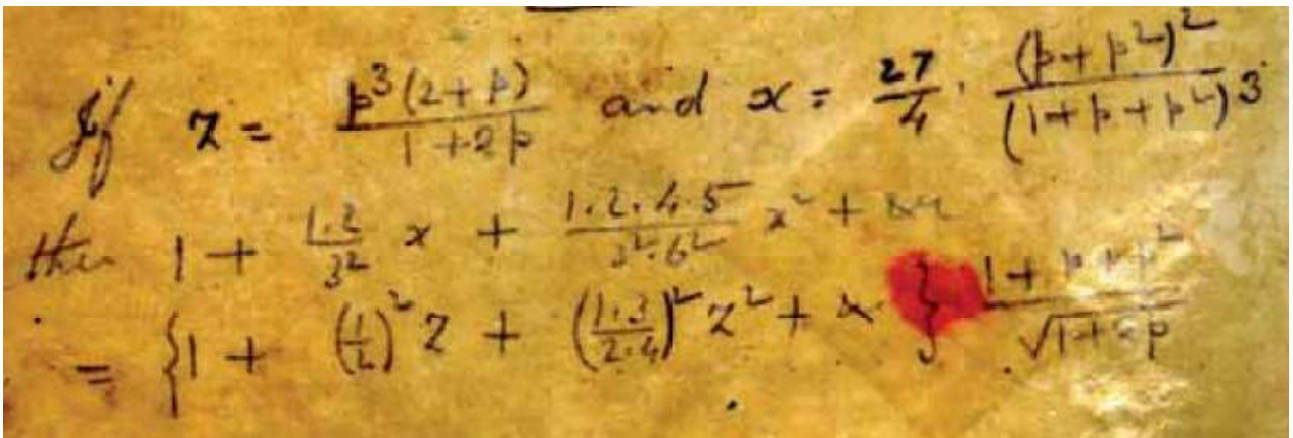 If z = p³(2+p)/(1+2p) and x = 27/4 · (p+p²)²/(1+p+p²)³
then 1 + 1.2/3² x + 1.2.4.5/3².6² x² + &c
= {1 + (1/2)² z + (1.3/2.4)² z² + &c} (1+p+p²)/√(1+2p)